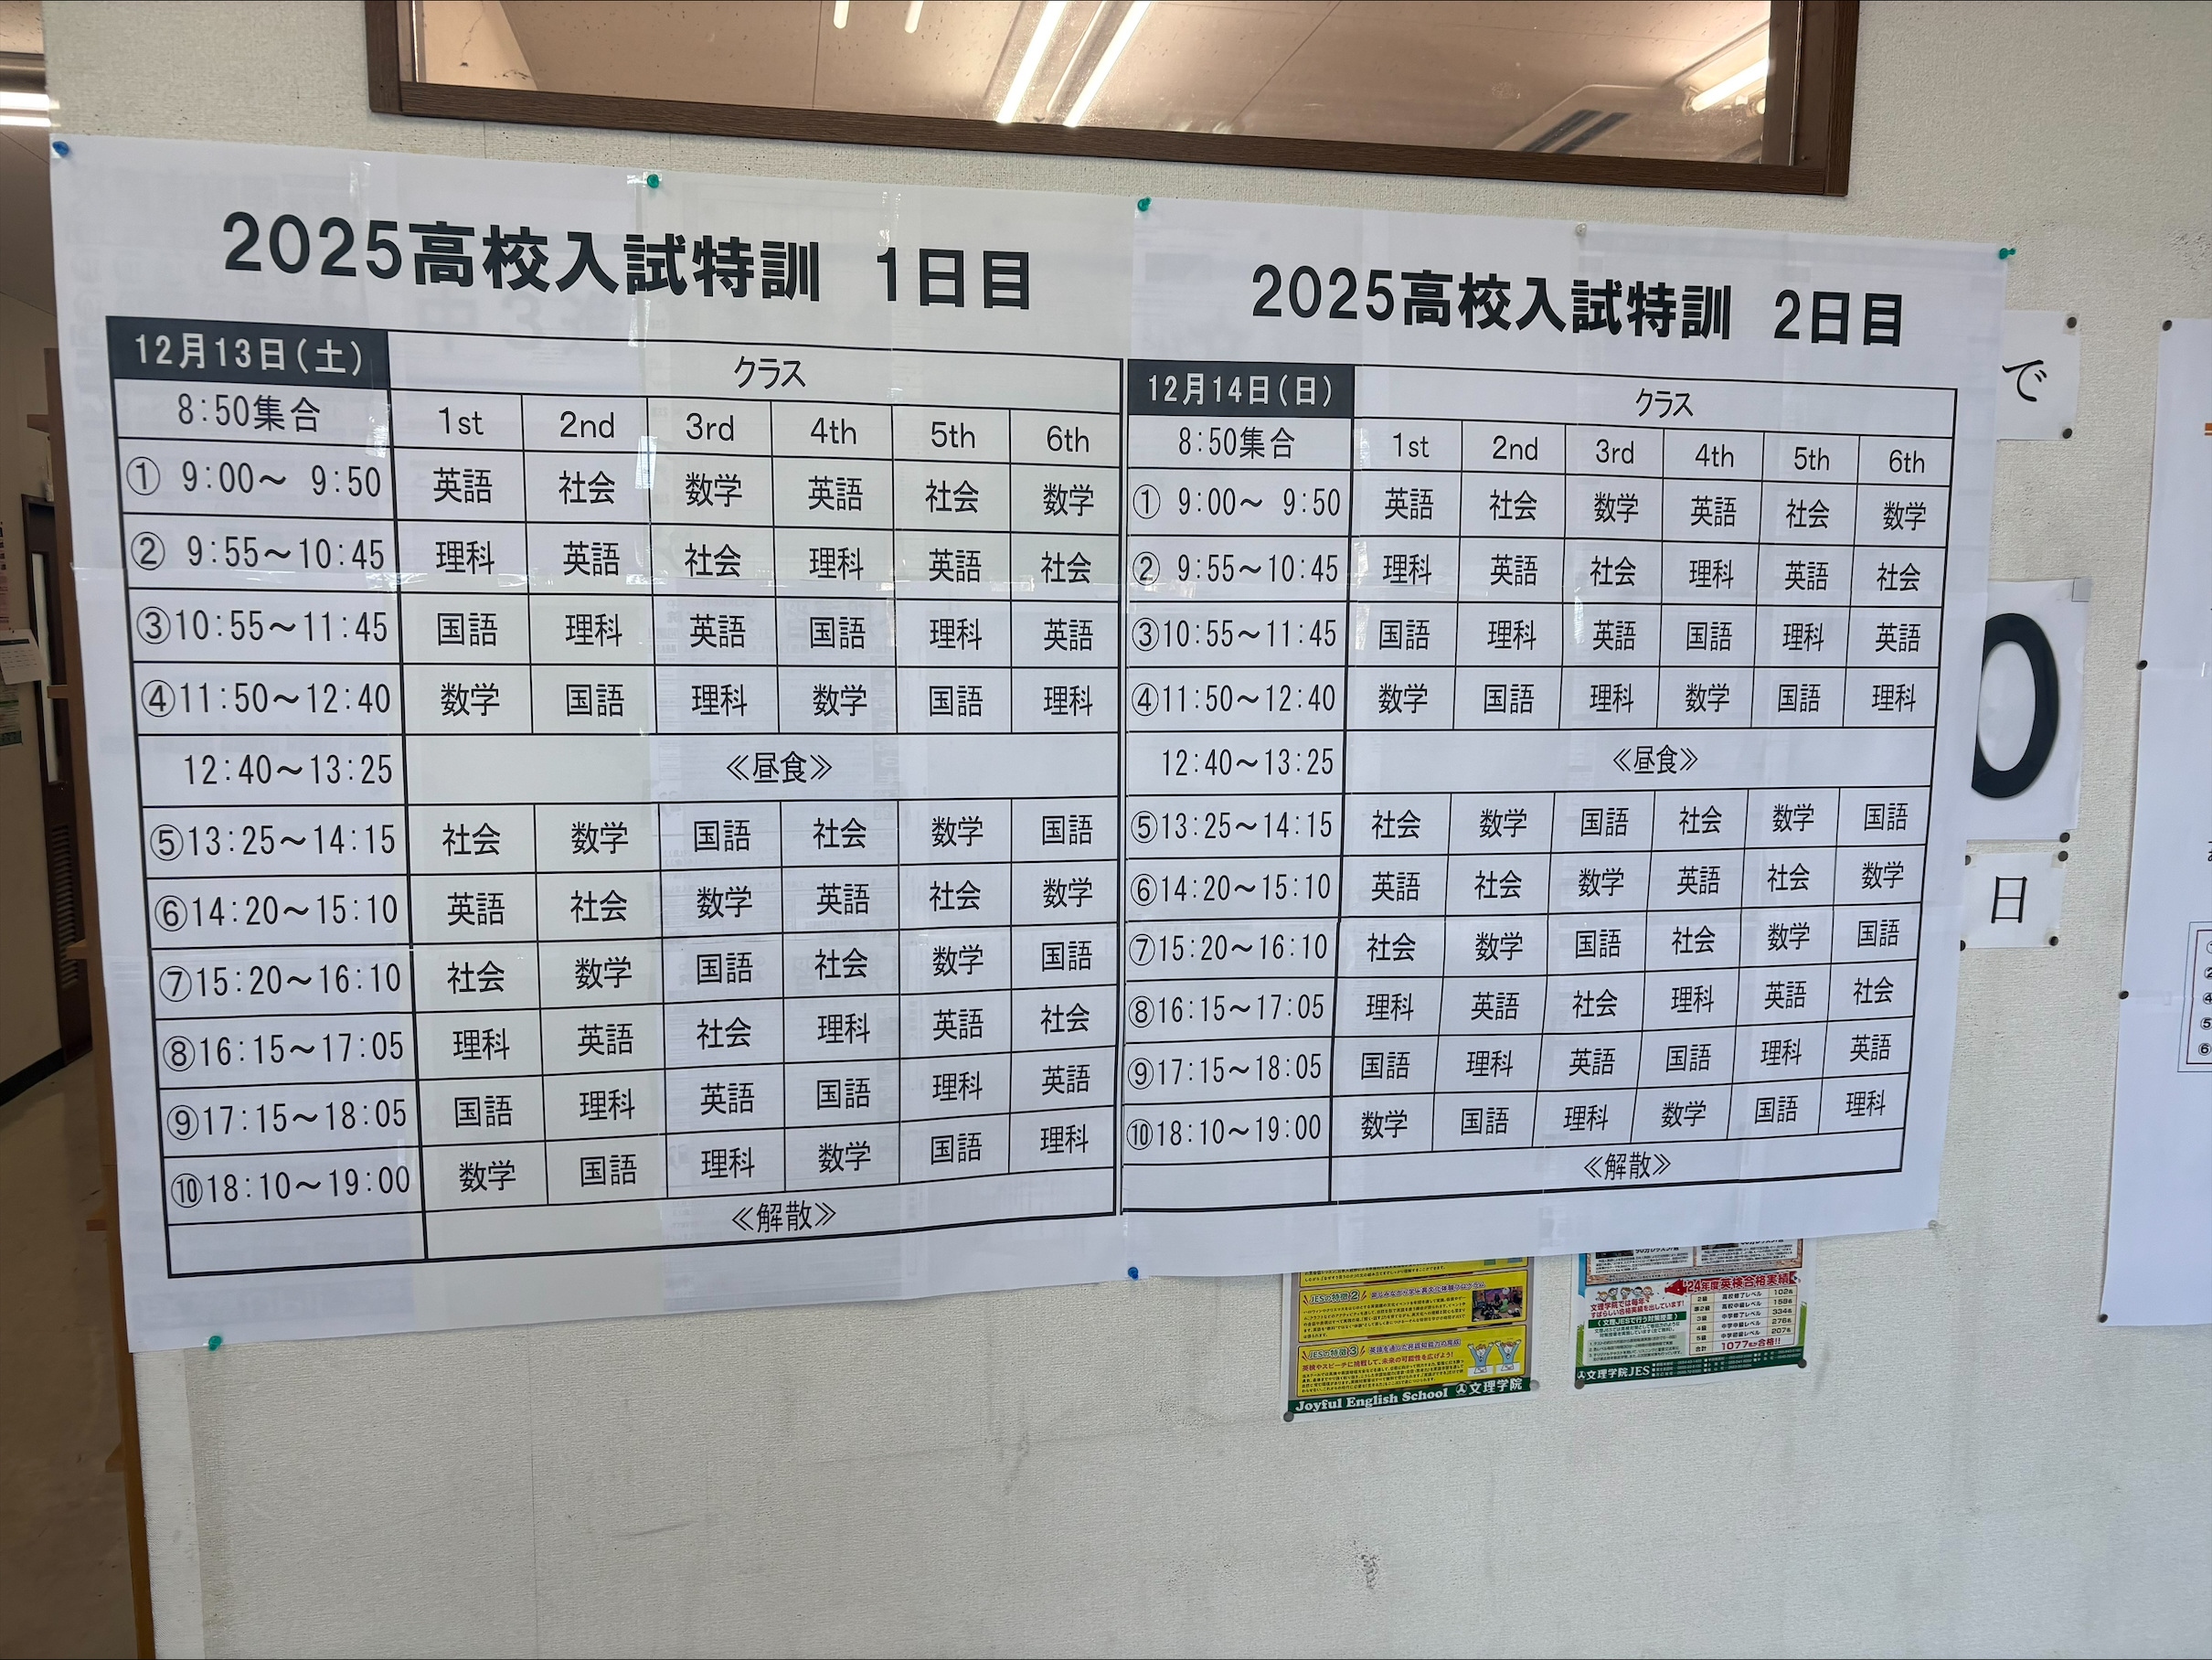 2025高校入試特訓 1日目
12月13日(土) クラス
8:50集合 1st 2nd 3rd 4th 5th 6th
① 9:00～ 9:50 英語 社会 数学 英語 社会 数学
② 9:55～10:45 理科 英語 社会 理科 英語 社会
③10:55～11:45 国語 理科 英語 国語 理科 英語
④11:50～12:40 数学 国語 理科 数学 国語 理科
12:40～13:25 ≪昼食≫
⑤13:25～14:15 社会 数学 国語 社会 数学 国語
⑥14:20～15:10 英語 社会 数学 英語 社会 数学
⑦15:20～16:10 社会 数学 国語 社会 数学 国語
⑧16:15～17:05 理科 英語 社会 理科 英語 社会
⑨17:15～18:05 国語 理科 英語 国語 理科 英語
⑩18:10～19:00 数学 国語 理科 数学 国語 理科
≪解散≫
2025高校入試特訓 2日目
12月14日(日) クラス
8:50集合 1st 2nd 3rd 4th 5th 6th
① 9:00～ 9:50 英語 社会 数学 英語 社会 数学
② 9:55～10:45 理科 英語 社会 理科 英語 社会
③10:55～11:45 国語 理科 英語 国語 理科 英語
④11:50～12:40 数学 国語 理科 数学 国語 理科
12:40～13:25 ≪昼食≫
⑤13:25～14:15 社会 数学 国語 社会 数学 国語
⑥14:20～15:10 英語 社会 数学 英語 社会 数学
⑦15:20～16:10 社会 数学 国語 社会 数学 国語
⑧16:15～17:05 理科 英語 社会 理科 英語 社会
⑨17:15～18:05 国語 理科 英語 国語 理科 英語
⑩18:10～19:00 数学 国語 理科 数学 国語 理科
≪解散≫
で
0
日
JESの特徴②
JESの特徴③
英検やスピーチに挑戦して、未来の可能性を広げよう!
Joyful English School 文理学院
'24年度英検合格実績
文理学院では毎年
すばらしい合格実績を出しています!
2級 高校卒業レベル 102名
準2級 高校中級レベル 158名
3級 中学卒業レベル 334名
4級 中学中級レベル 276名
5級 中学初級レベル 207名
合計 1077名が合格!!
文理学院JES